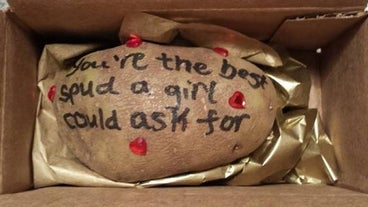 You're the best
spud a girl
could ask for